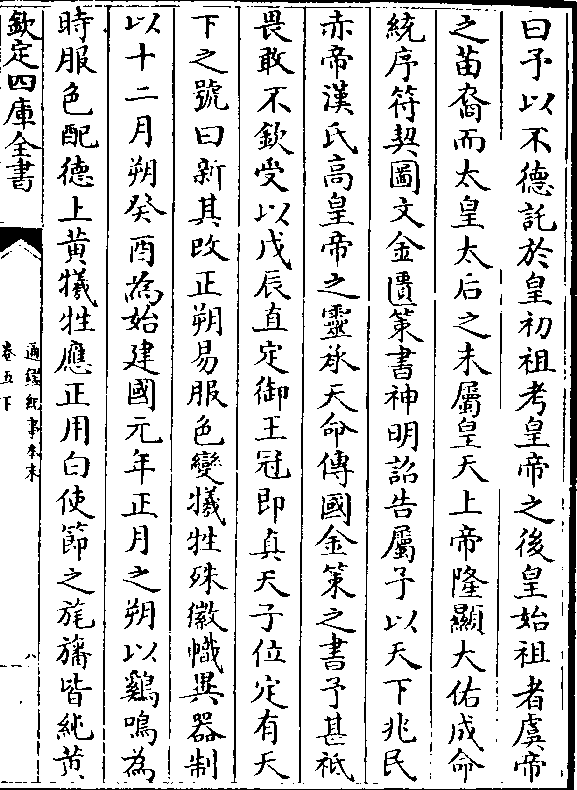 曰予以不德託於皇初祖考皇帝之後皇始祖考虞帝
之苗裔而太皇太后之末屬皇天上帝隆顯大佑成命
統序符契圖文金匱策書神明詔告屬予以天下兆民
赤帝漢氏高皇帝之靈承天命傳國金策之書予甚祗
畏敢不欽受以戊辰直定御王冠即真天子位定有天
下之號曰新其改正朔易服色變犧牲殊徽幟異器制
以十二月朔癸酉為始建國元年正月之朔以鷄鳴為
時服色配德上黄犧牲應正用白使節之旄旛皆純黄
欽定四庫全書
通鑑紀事本末
卷五下
八